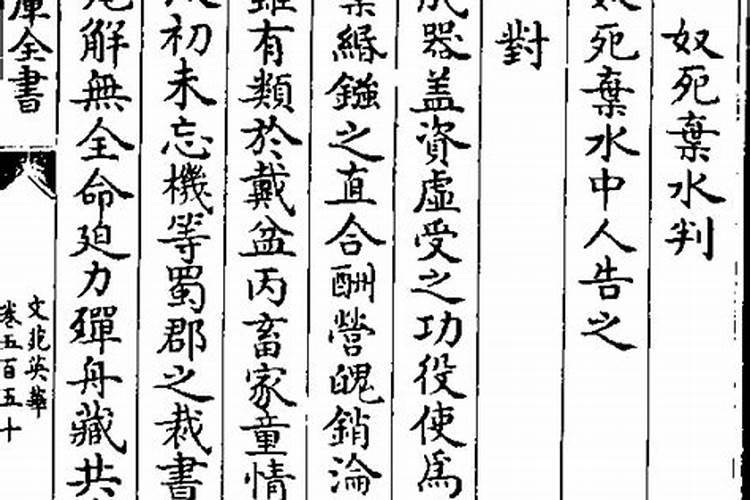 奴死棄水判
死棄水中人告之
對
器盖資虛受之功役使為
緡鏹之直合酬營魄銷淪
有類於戴盆丙畜家童情
初未忘機等蜀郡之裁書
解無全命迫力殫舟藏共
庫全書
文苑英華
卷五百五十